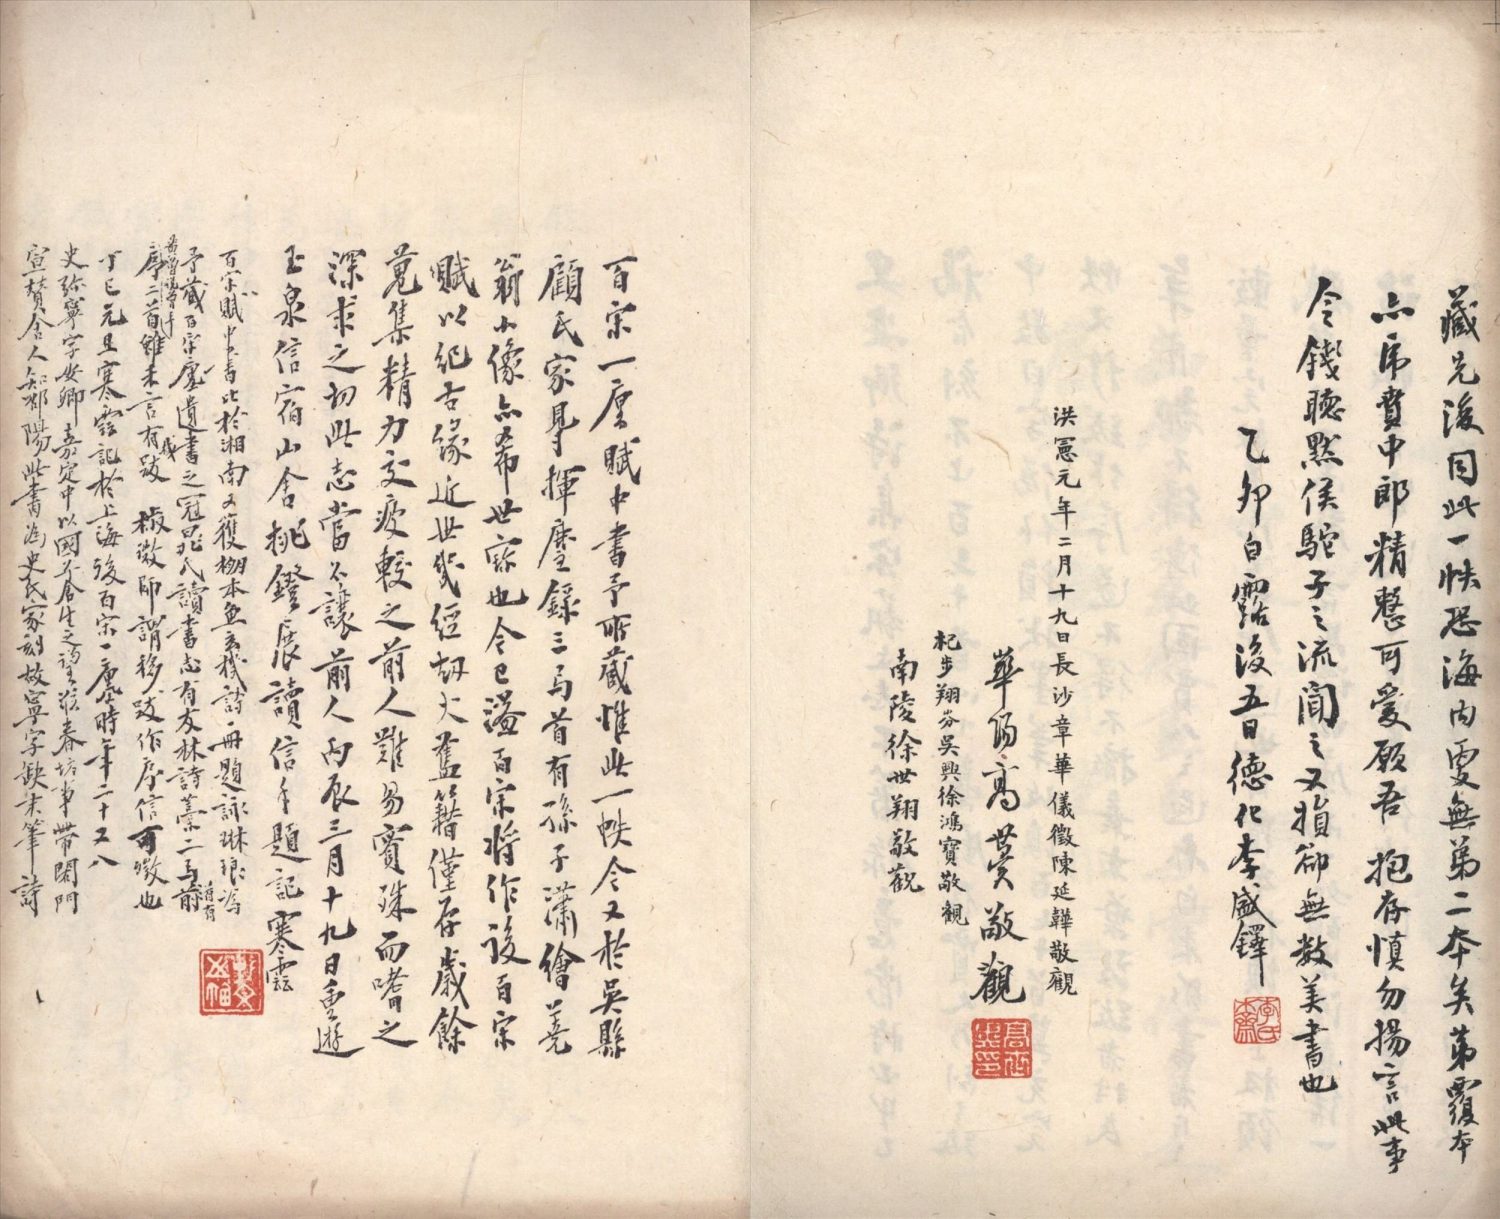 藏兄後同此一帙恐海内更無第二本矣苐覆本
亦虎賁中郎精整可愛願吾抱存慎勿揚言此事
令錢聽默侯駝子之流聞之又損卻無數美書也
乙卯白露後五日德化李盛鐸
洪憲元年二月十九日長沙章華儀徵陳延韡敬觀
華陽高世異敬觀
杞步翔芬吳興徐鴻寶敬觀
南陵徐世翔敬觀
百宋一廛賦中書予所藏惟此一帙今又於吳縣
顧氏家見揮麈錄三葉首有孫子瀟繪蕘
翁小像亦希世珍也今已溢百宋將作後百宋
賦以紀古緣近世幾經劫火舊籍僅存歲餘
蒐集精力交疲較之前人難易賓珠而嗜之
深求之切此志當不讓前人丙辰三月十九日重遊
玉泉信宿山舍挑鐙展讀信手題記寒雲
百宋賦中書比於湘南又獲棚本魚玄機詩一冊題詠琳琅為
予藏百宋廛遺書之冠晁氏讀書志有友林詩藁二卷前有
序二首雖未言有跋椒微師謂移跋作序信可徵也
丁巳元旦寒雲記於上海後百宋一廛時年二十又八
史弥寧字安卿嘉定中以國子舍生之望涖春坊事帶閤門
宣贊舍人知邵陽此書為史氏家刻故寧字缺末筆詩